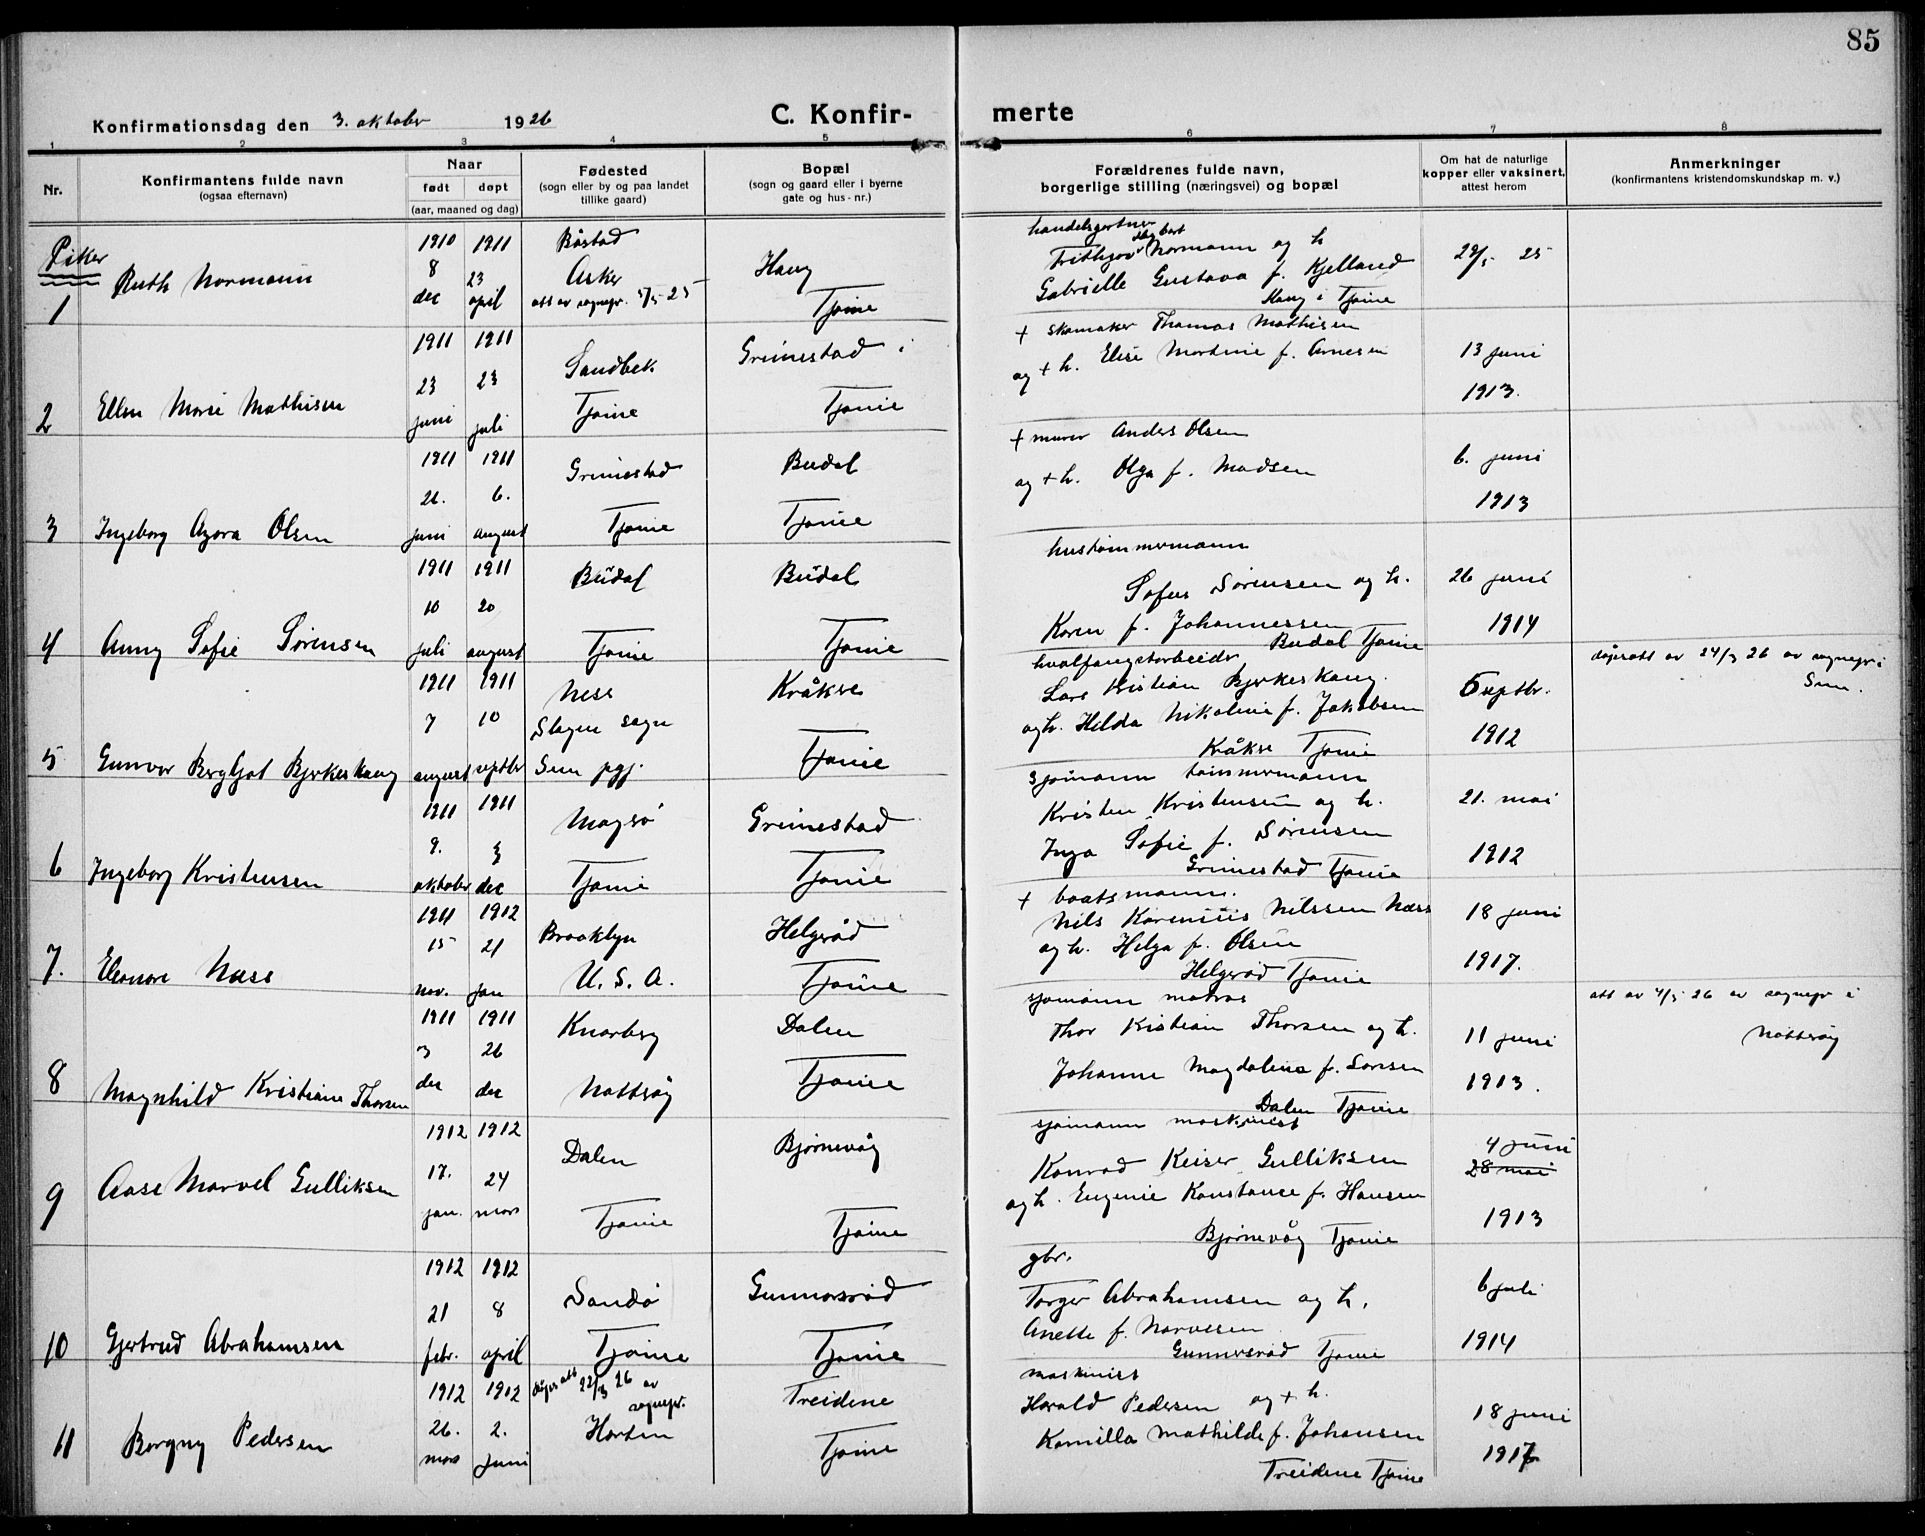 85
Konfirmationsdag den 3. oktober 1926
C. Konfir-
merte
1 2 3 4 5 6 7 8
Nr.
Konfirmantens fulde navn
(ogsaa efternavn)
Naar
født døpt
(aar, maaned og dag)
Fødested
(sogn eller by og paa landet
tillike gaard)
Bopæl
(sogn og gaard eller i byerne
gate og hus-nr.)
Forældrenes fulde navn,
borgerlige stilling (næringsvei) og bopæl
Om hat de naturlige
kopper eller vaksinert,
attest herom
Anmerkninger
(konfirmantens kristendomskundskap m. v.)
Piker
1
Ruth Normann
1910 8 dec
1911 23 april
Båstad
Asker
att av sognepr. 5/5 25
Haug
Tjøme
handelsgartner
Frithjov Normann og h
Gabrielle Gustava f. Kjelland
Haug i Tjøme
28/5 25
2
Ellen Marie Mathisen
1911 23 juni
1911 23 juli
Sandbek
Tjøme
Grimestad i
Tjøme
+ skomaker Thomas Mathisen
og + h. Elise Martine f. Arnesen
13 juni
1913.
3
Ingeborg Agora Olsen
1911 21. juni
1911 6. august
Grimestad
Tjøme
Budal
Tjøme
+ murer Anders Olsen
og + h. Olga f. Madsen
6. juni
1913
4
Anny Sofie Sørensen
1911 10 juli
1911 20 august
Budal
Tjøme
Budal
Tjøme
hustømmermann
Sofus Sørensen og h.
Karen f. Johannessen
Budal Tjøme
26 juni
1914
5
Gunvor Bergljot Bjerkeskaug
1911 7 august
1911 10 septbr
Ness
Slagen sogn
Sem pgj.
Kråkse
Tjøme
hvalfangstarbeider
Lars Kristian Bjerkeskaug.
og h. Hilda Nikoline f. Jakobsen
Kråkse Tjøme
5 septbr.
1912
dåpsatt av 24/3 26 av sognepr i
Sem.
6
Ingeborg Kristensen
1911 9. oktober
1911 3 dec
Magsø
Tjøme
Grimestad
Tjøme
sjømann tømmermann
Kristen Kristensen og h.
Inga Sofie f. Sørensen
Grimestad Tjøme
21. mai
1912
7.
Eleonore Næss
1911 15 nov.
1912 21 jan
Brooklyn
U. S. A.
Helgerød
Tjøme
+ baatsmann.
Nils Karenius Nilssen Næss
og h. Helga f. Olsen
Helgerød Tjøme
18 juni
1917.
8
Magnhild Kristiane Thorsen
1911 3 dec
1911 26 dec
Knarberg
Nøtterøy
Dalen
Tjøme
sjømann matros
Thor Kristian Thorsen og h.
Johanne Magdalena f. Larsen
Dalen Tjøme
11 juni
1913.
att av 4/5 26 av sognepr i
Nøtterøy
9
Aase Marvel Gulliksen
1912 17. jan.
1912 24 mars
Dalen
Tjøme
Bjørnevåg
Tjøme
sjømann maskinist
Konrad Keiser Gulliksen
og h. Eugenie Konstance f. Hansen
Bjørnevåg Tjøme
4 juni
28 mai
1913
10
Gjertrud Abrahamsen
1912 21 febr.
1912 8 april
Sandø
Tjøme
Gunnarsrød
Tjøme
gbr.
Torger Abrahamsen og h.
Anette f. Narvesen
Gunnarsrød Tjøme
6 juli
1914
11
Borgny Pedersen
1912 26. mars
1912 2. juni
dåpsatt 22/3 26 av
sognepr.
Horten
Treidene
Tjøme
maskinist
Harald Pedersen og + h.
Kamilla Mathilde f. Johansen
Treidene Tjøme
18 juni
1917